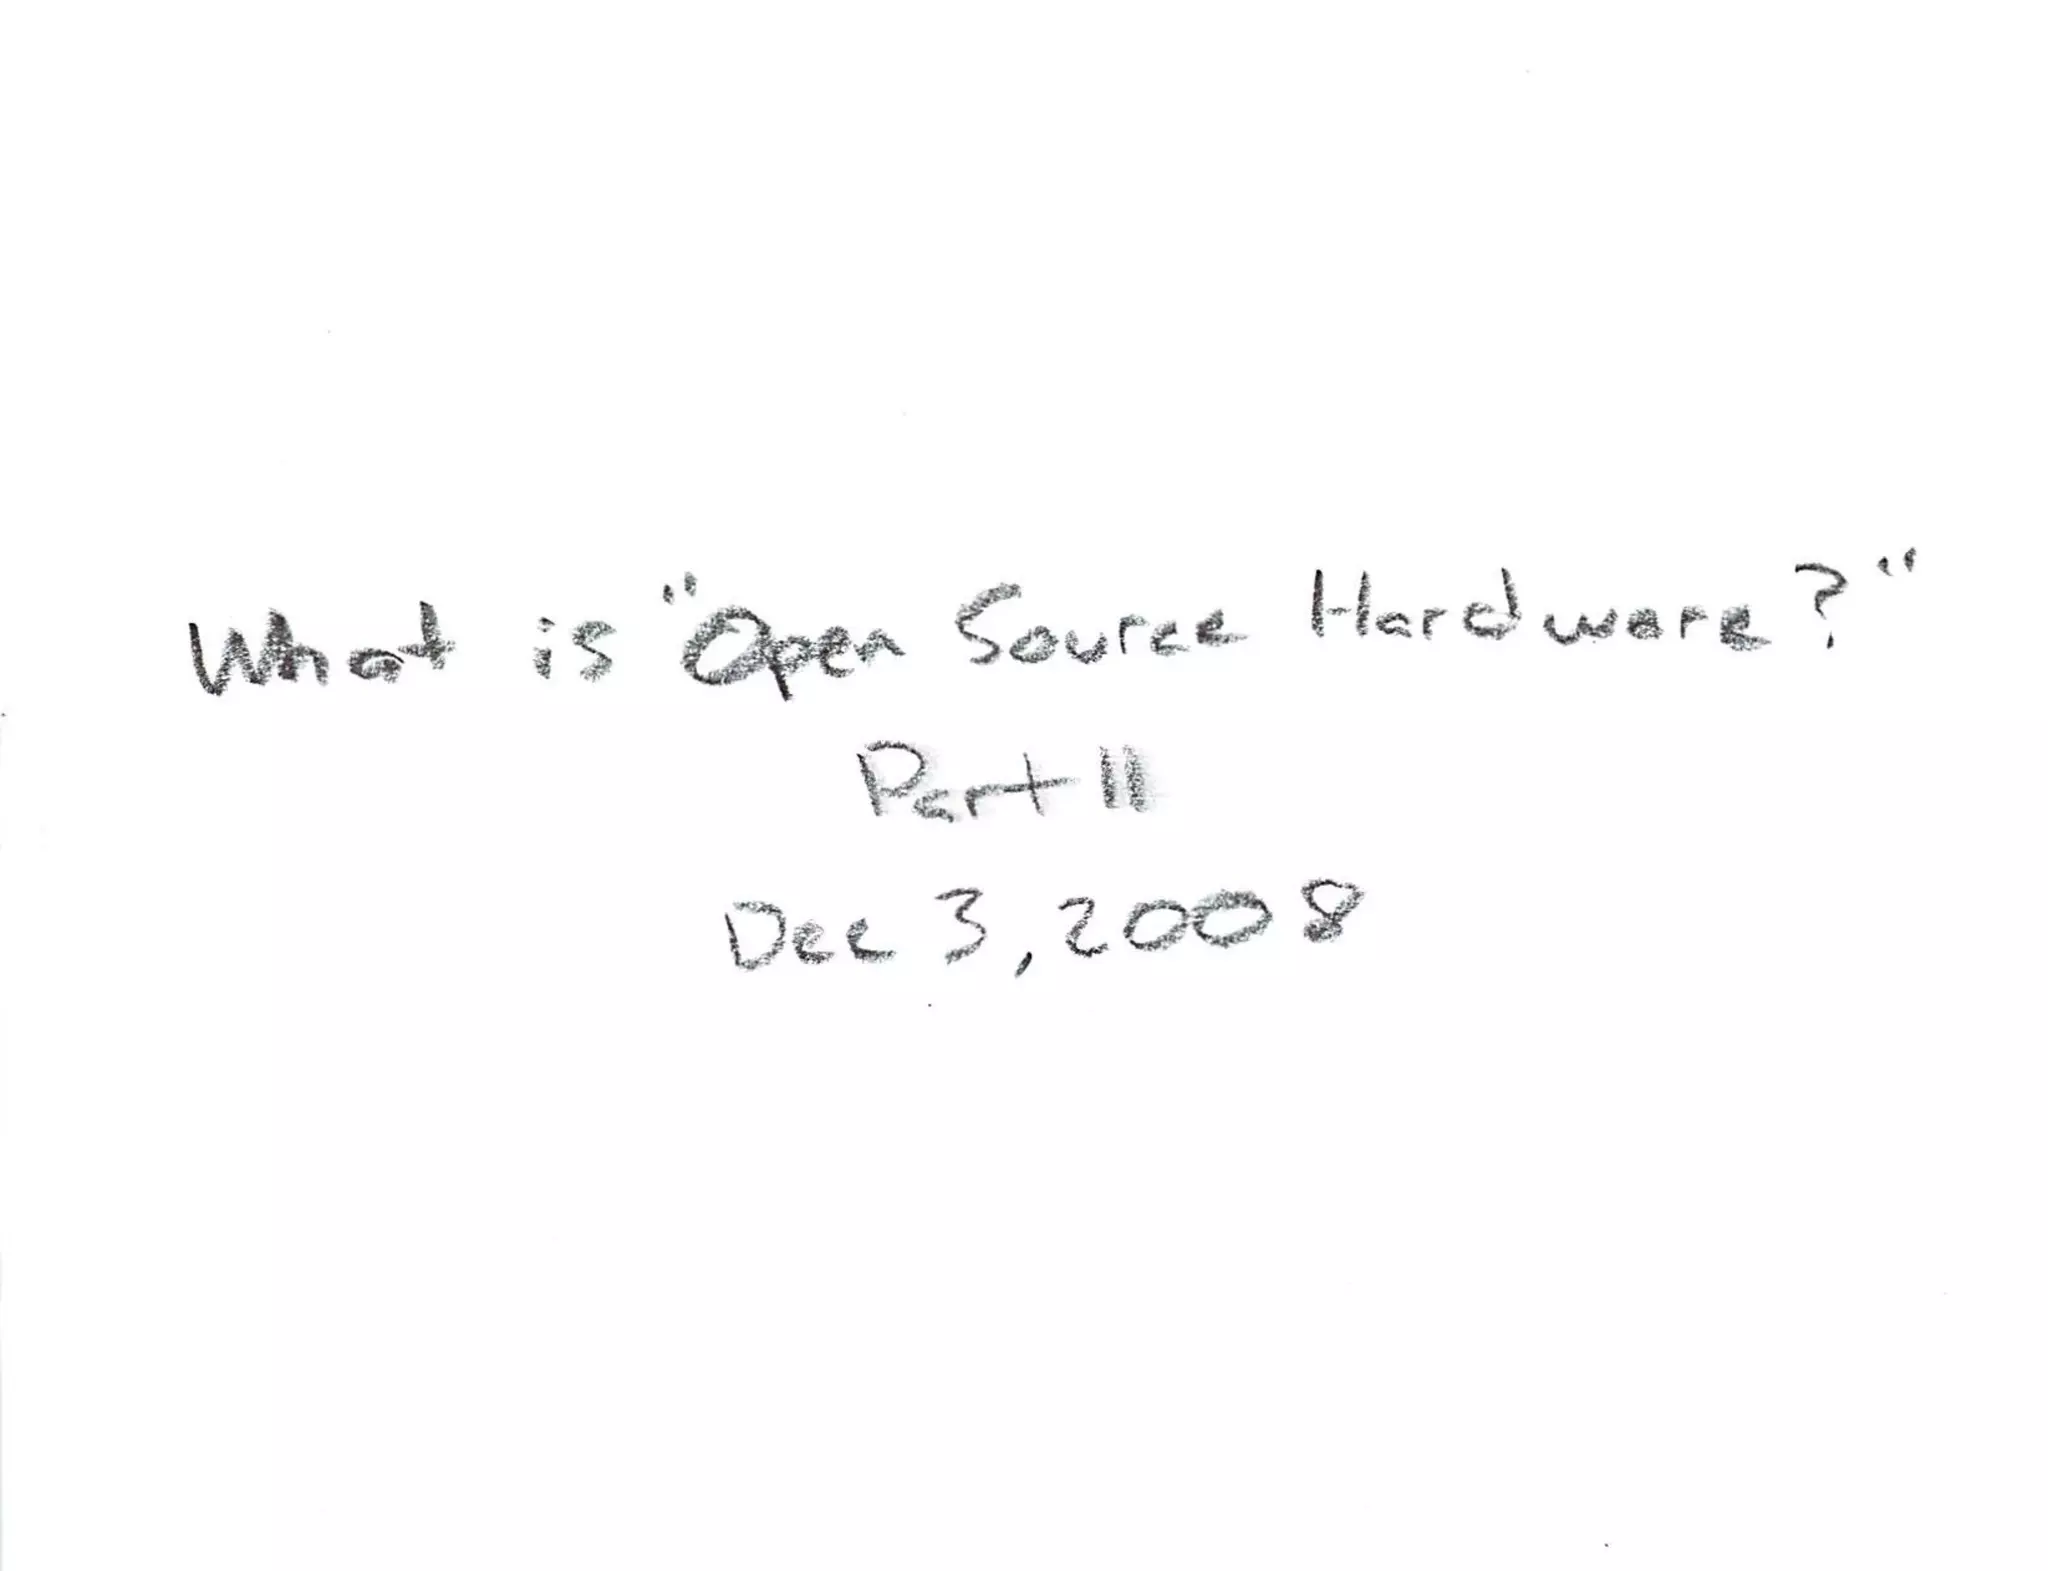 What is "Open Source Hardware?"
Part II
Dec 3, 2008